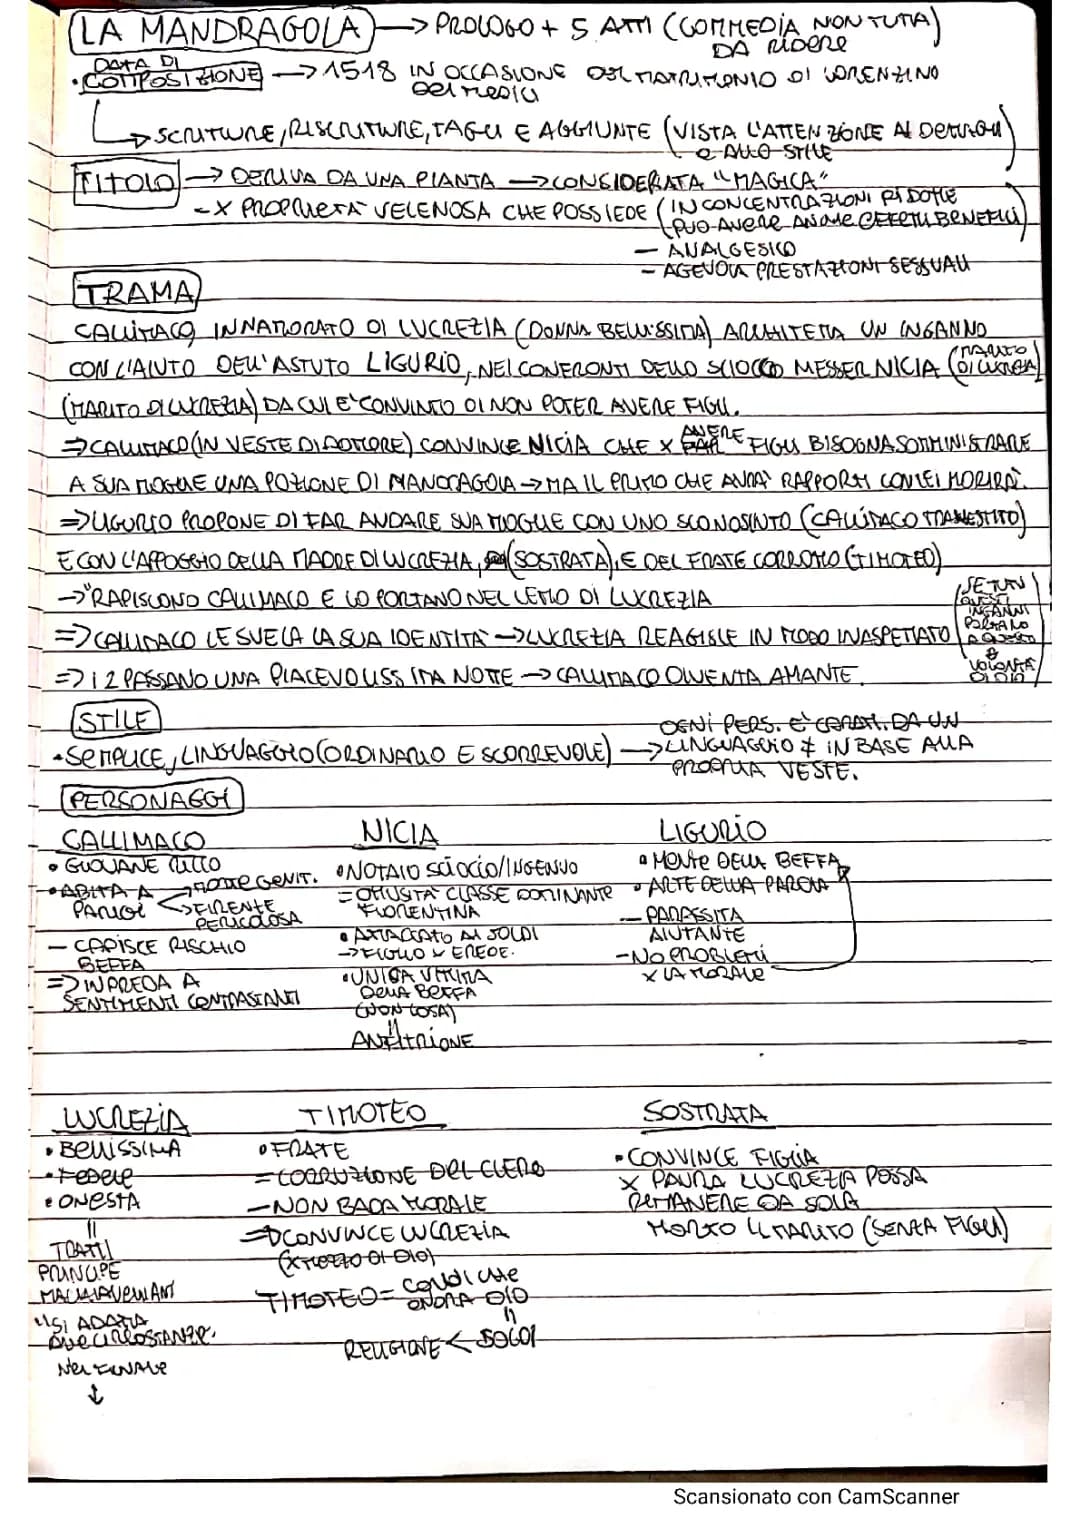 LA MANDRAGOLA → PROLOGO + 5 ATTI (COMMEDIA NON TUTTA DA RIDERE)
• DATA DI COMPOSIZIONE → 1518 IN OCCASIONE DEL MATRIMONIO DI LORENZINO DEI MEDICI
↳ SCRITTURE, RISCRITTURE, TAGLI E AGGIUNTE (VISTA L'ATTENZIONE AI DETTAGLI E ALLO STILE)
TITOLO → DERIVA DA UNA PIANTA → CONSIDERATA "MAGICA"
- X PROPRIETA' VELENOSA CHE POSSIEDE (IN CONCENTRAZIONI RIDOTTE PUO AVERE ANCHE EFFETTI BENEFICI)
- ANALGESICO
- AGEVOLA PRESTAZIONI SESSUALI
TRAMA
CALLIMACO, INNAMORATO DI LUCREZIA (DONNA BELLISSIMA) ARCHITETTA UN INGANNO
CON L'AIUTO DELL'ASTUTO LIGURIO, NEI CONFRONTI DELLO SCIOCCO MESSER NICIA (MARITO DI LUCREZIA)
(MARITO DI LUCREZIA) DA CUI E' CONVINTO DI NON POTER AVERE FIGLI.
⇒ CALLIMACO (IN VESTE DI DOTTORE) CONVINCE NICIA CHE X AVERE FIGLI BISOGNA SOMMINISTRARE
A SUA MOGLIE UNA POZIONE DI MANDRAGOLA → MA IL PRIMO CHE AVRA' RAPPORTI CON LEI MORIRA'.
⇒ LIGURIO PROPONE DI FAR ANDARE SUA MOGLIE CON UNO SCONOSIUTO (CALLIMACO TRAVESTITO)
E CON L'APPOGGIO DELLA MADRE DI LUCREZIA, (SOSTRATA), E DEL FRATE CORROTTO (TIMOTEO)
→ "RAPISCONO CALLIMACO E LO PORTANO NEL LETTO DI LUCREZIA
⇒ CALLIMACO LE SVELA LA SUA IDENTITA' → LUCREZIA REAGISCE IN MODO INASPETTATO (SE TUTTI QUESTI INGANNI PORTANO A QUESTO È VOLONTÀ DI DIO)
⇒ I 2 PASSANO UNA PIACEVOLISSIMA NOTTE → CALLIMACO DIVENTA AMANTE.
STILE
• SEMPLICE, LINGUAGGIO (ORDINARIO E SCORREVOLE) → OGNI PERS. E' CARATT. DA UN LINGUAGGIO ≠ IN BASE ALLA PROPRIA VESTE.
PERSONAGGI
CALLIMACO
• GIOVANE RICCO
• ABITA A PARIGI → MORTE GENIT.
→ FIRENTE PERICOLOSA
- CAPISCE RISCHIO BEFFA
⇒ IN PREDA A SENTIMENTI CONTRASTANTI
NICIA
• NOTAIO SCIOCCO/INGENUO
= OTTUSITA' CLASSE DOMINANTE FIORENTINA
• ATTACCATO AI SOLDI
→ FIGLIO X EREDE.
• UNICA VITTIMA DELLA BEFFA (NON LO SA)
ANFITRIONE
LIGURIO
• MENTE DELLA BEFFA
• ARTE DELLA PAROLA
- PARASSITA AIUTANTE
- NO PROBLEMI X LA MORALE
LUCREZIA
• BELLISSIMA
• FEDELE
• ONESTA
TRATTI PRINCIPE MACHIAVELLIANI
"SI ADATTA ALLE CIRCOSTANZE.
NEL FINALE
↓
TIMOTEO
• FRATE
= CORRUZIONE DEL CLERO
- NON BADA MORALE
⇒ CONVINCE LUCREZIA (X MEZZO DI DIO)
TIMOTEO = COLUI CHE ONORA DIO
RELIGIONE < SOLDI
SOSTRATA
• CONVINCE FIGLIA
X PAURA LUCREZIA POSSA RIMANERE DA SOLA
MORTO IL MARITO (SENZA FIGLI)
Scansionato con CamScanner